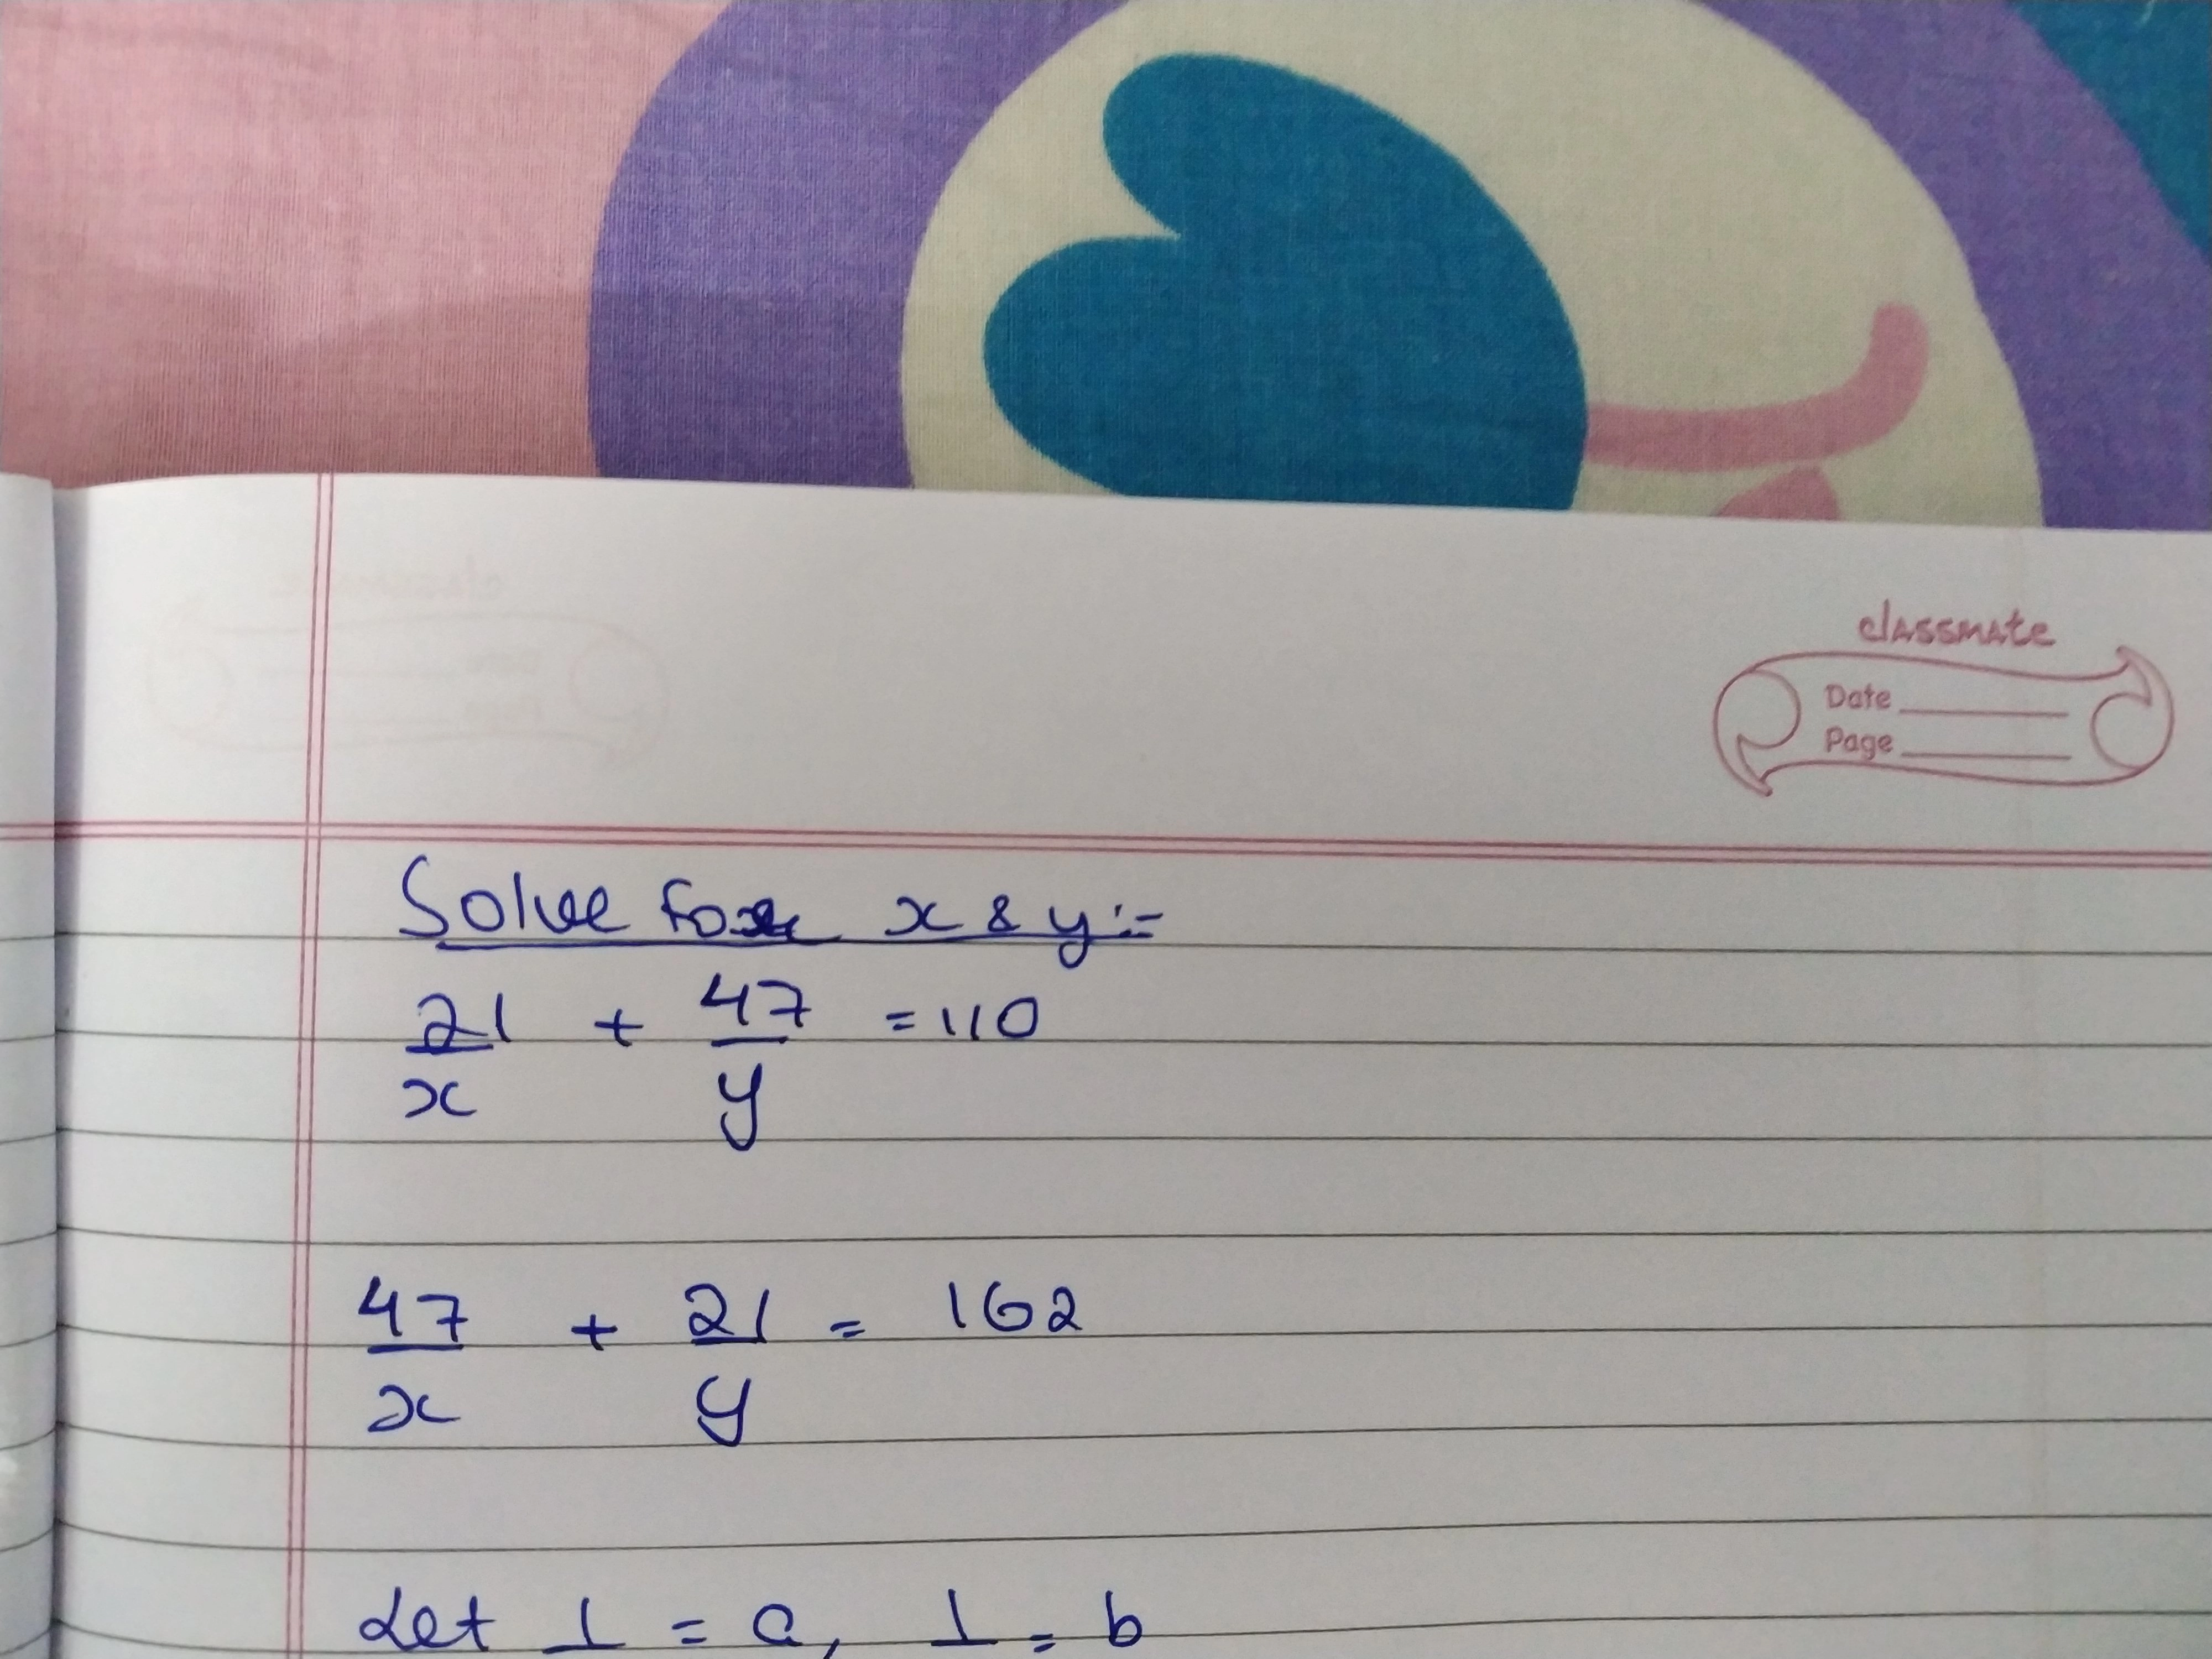 classmate
Date
Page
Solve for x & y :-
21/x + 47/y = 110
47/x + 21/y = 162
Let 1 = a, 1 = b